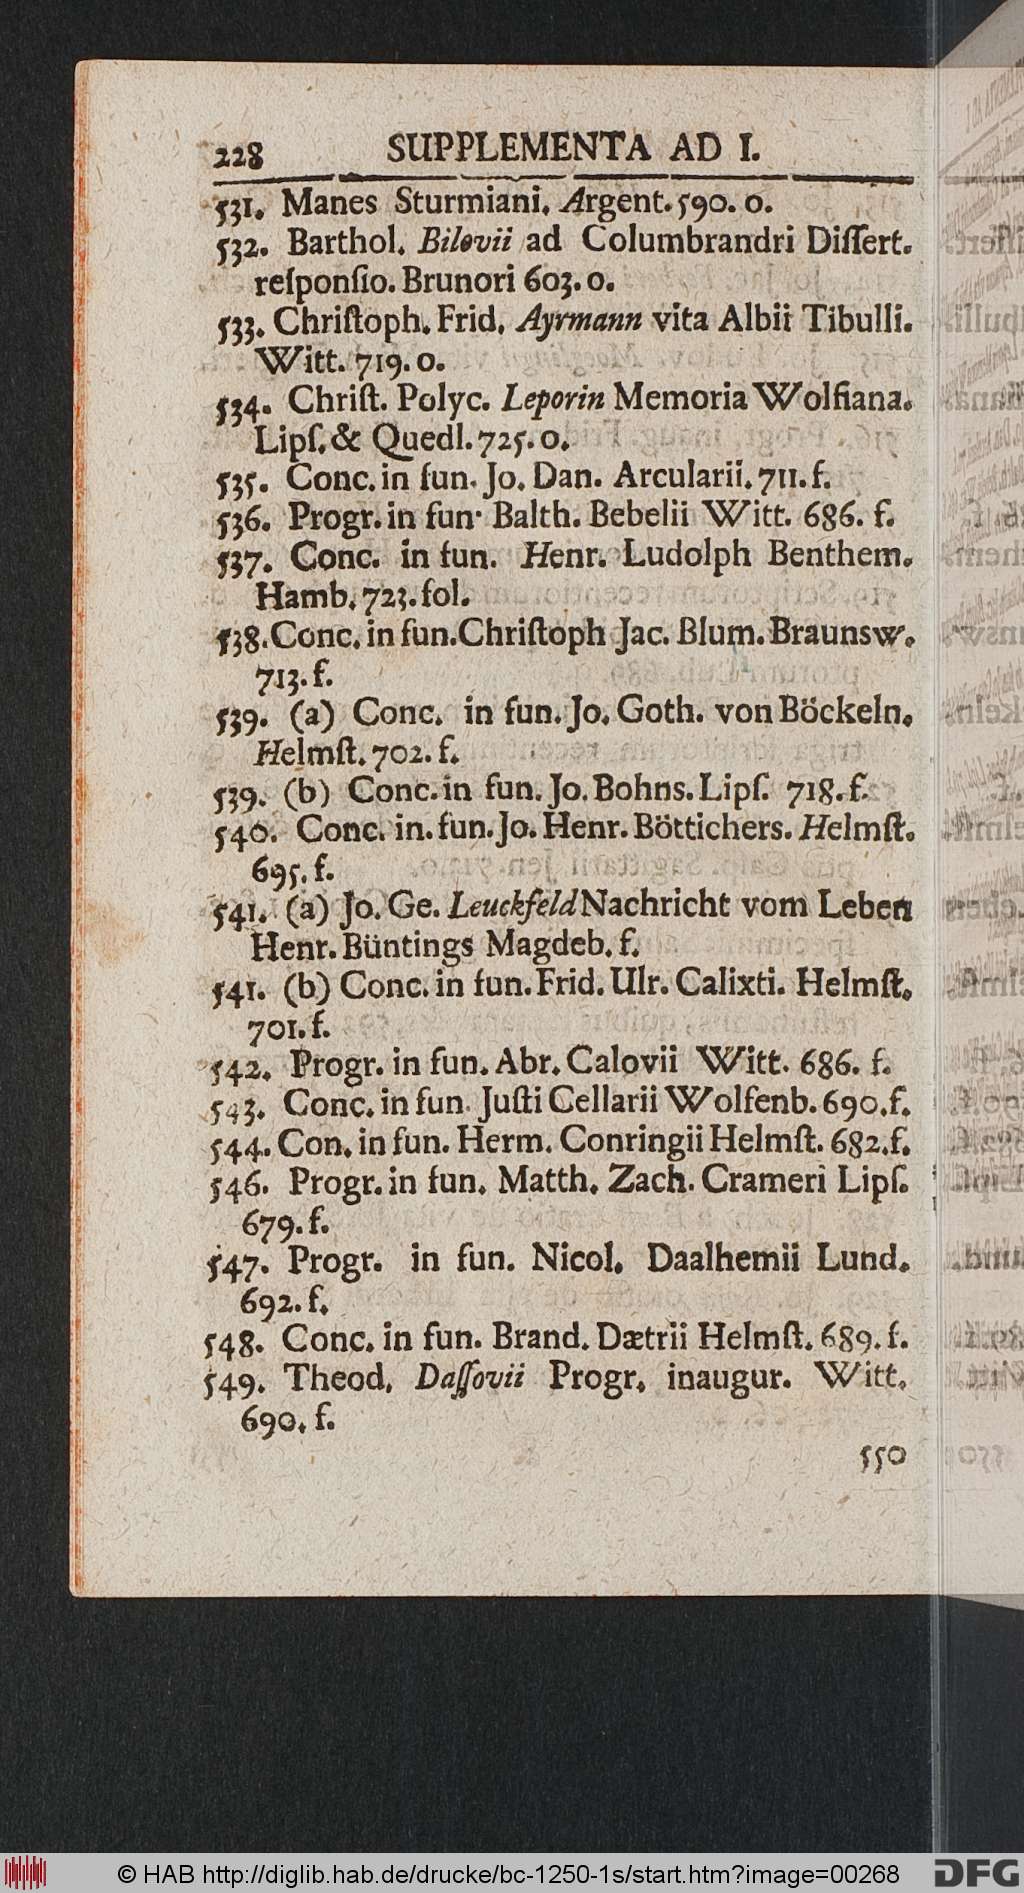 228 SUPPLEMENTA AD I.
531. Manes Sturmiani. Argent. 590. o.
532. Barthol. Bilovii ad Columbrandri Diſſert.
reſponſio. Brunori 603. o.
533. Chriſtoph. Frid. Ayrmann vita Albii Tibulli.
Witt. 719. o.
534. Chriſt. Polyc. Leporin Memoria Wolfiana.
Lipſ. & Quedl. 725. o.
535. Conc. in fun. Jo. Dan. Arcularii. 711. f.
536. Progr. in fun. Balth. Bebelii Witt. 686. f.
537. Conc. in fun. Henr. Ludolph Benthem.
Hamb. 723. fol.
538. Conc. in fun. Chriſtoph Jac. Blum. Braunsw.
713. f.
539. (a) Conc. in fun. Jo. Goth. von Böckeln.
Helmſt. 702. f.
539. (b) Conc. in fun. Jo. Bohns. Lipſ. 718. f.
540. Conc. in. fun. Jo. Henr. Böttichers. Helmſt.
695. f.
541. (a) Jo. Ge. Leuckfeld Nachricht vom Leben
Henr. Büntings Magdeb. f.
541. (b) Conc. in fun. Frid. Ulr. Calixti. Helmſt.
701. f.
542. Progr. in fun. Abr. Calovii Witt. 686. f.
543. Conc. in fun. Juſti Cellarii Wolfenb. 690. f.
544. Con. in fun. Herm. Conringii Helmſt. 682. f.
546. Progr. in fun. Matth. Zach. Crameri Lipſ.
679. f.
547. Progr. in fun. Nicol. Daalhemii Lund.
692. f.
548. Conc. in fun. Brand. Dætrii Helmſt. 689. f.
549. Theod. Daſſovii Progr. inaugur. Witt.
690. f.
550
© HAB http://diglib.hab.de/drucke/bc-1250-1s/start.htm?image=00268
DFG